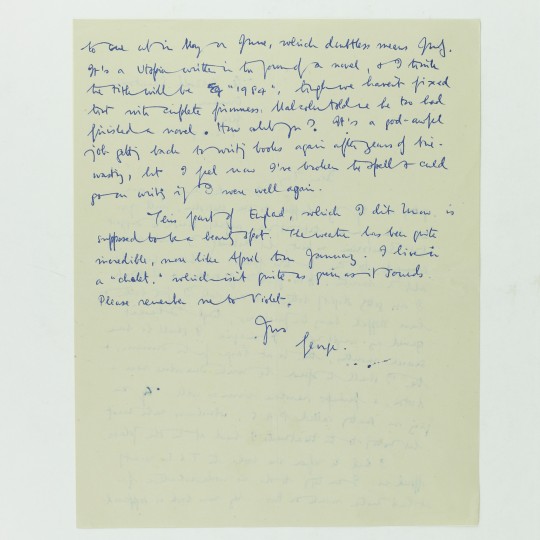 to come out in May or June, which doubtless means July.
It's a Utopia written in the form of a novel, & I think
the title will be "1984", though we haven't fixed
that with complete firmness. Malcolm told me he too had
finished a novel. How about you? It's a god-awful
job getting back to writing books again after years of time-
wasting, but I feel now I've broken the spell & could
go on writing if I were well again.
This part of England, which I didn't know, is
supposed to be a beauty spot. The weather has been quite
incredible, more like April than January. I live in
a "chalet," which isn't quite as grim as it sounds.
Please remember me to Violet.
Yours
George.